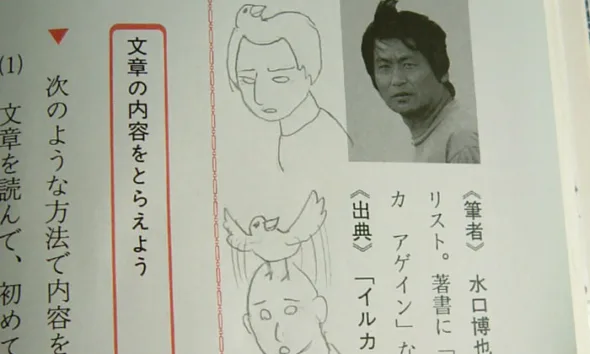 《筆者》 水口博也
リスト。著書に「
カ アゲイン」な
《出典》 「イルカ
文章の内容をとらえよう
▼ 次のような方法で内容を
(1) 文章を読んで、初めて